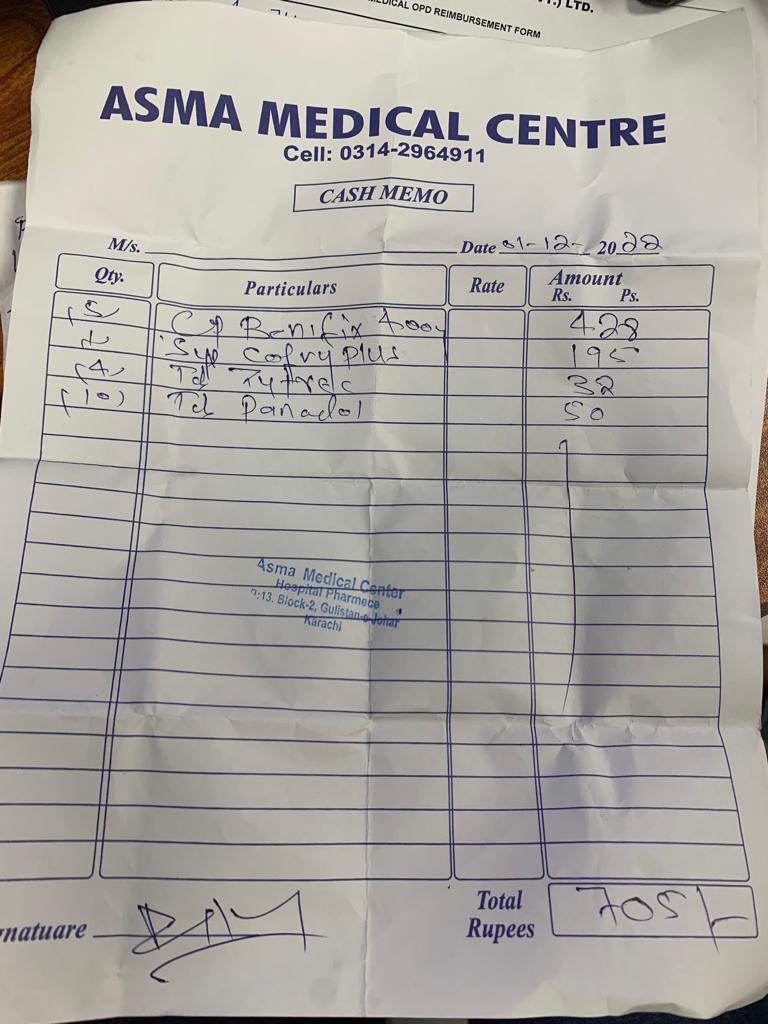 .) LTD.
MEDICAL OPD REIMBURSEMENT FORM
ASMA MEDICAL CENTRE
Cell: 0314-2964911
CASH MEMO
M/s. Date 01-12- 2022
Qty. Particulars Rate Amount
Rs. Ps.
(5 Cap 400 428
1 Syp Cofry Plus 195
(4 Tab 32
(10) Tab Panadol 50
Asma Medical Center
Hospital Pharmece
:13. Block-2, Gulistan-e-Johar
Karachi
Total
Rupees 705/-
natuare